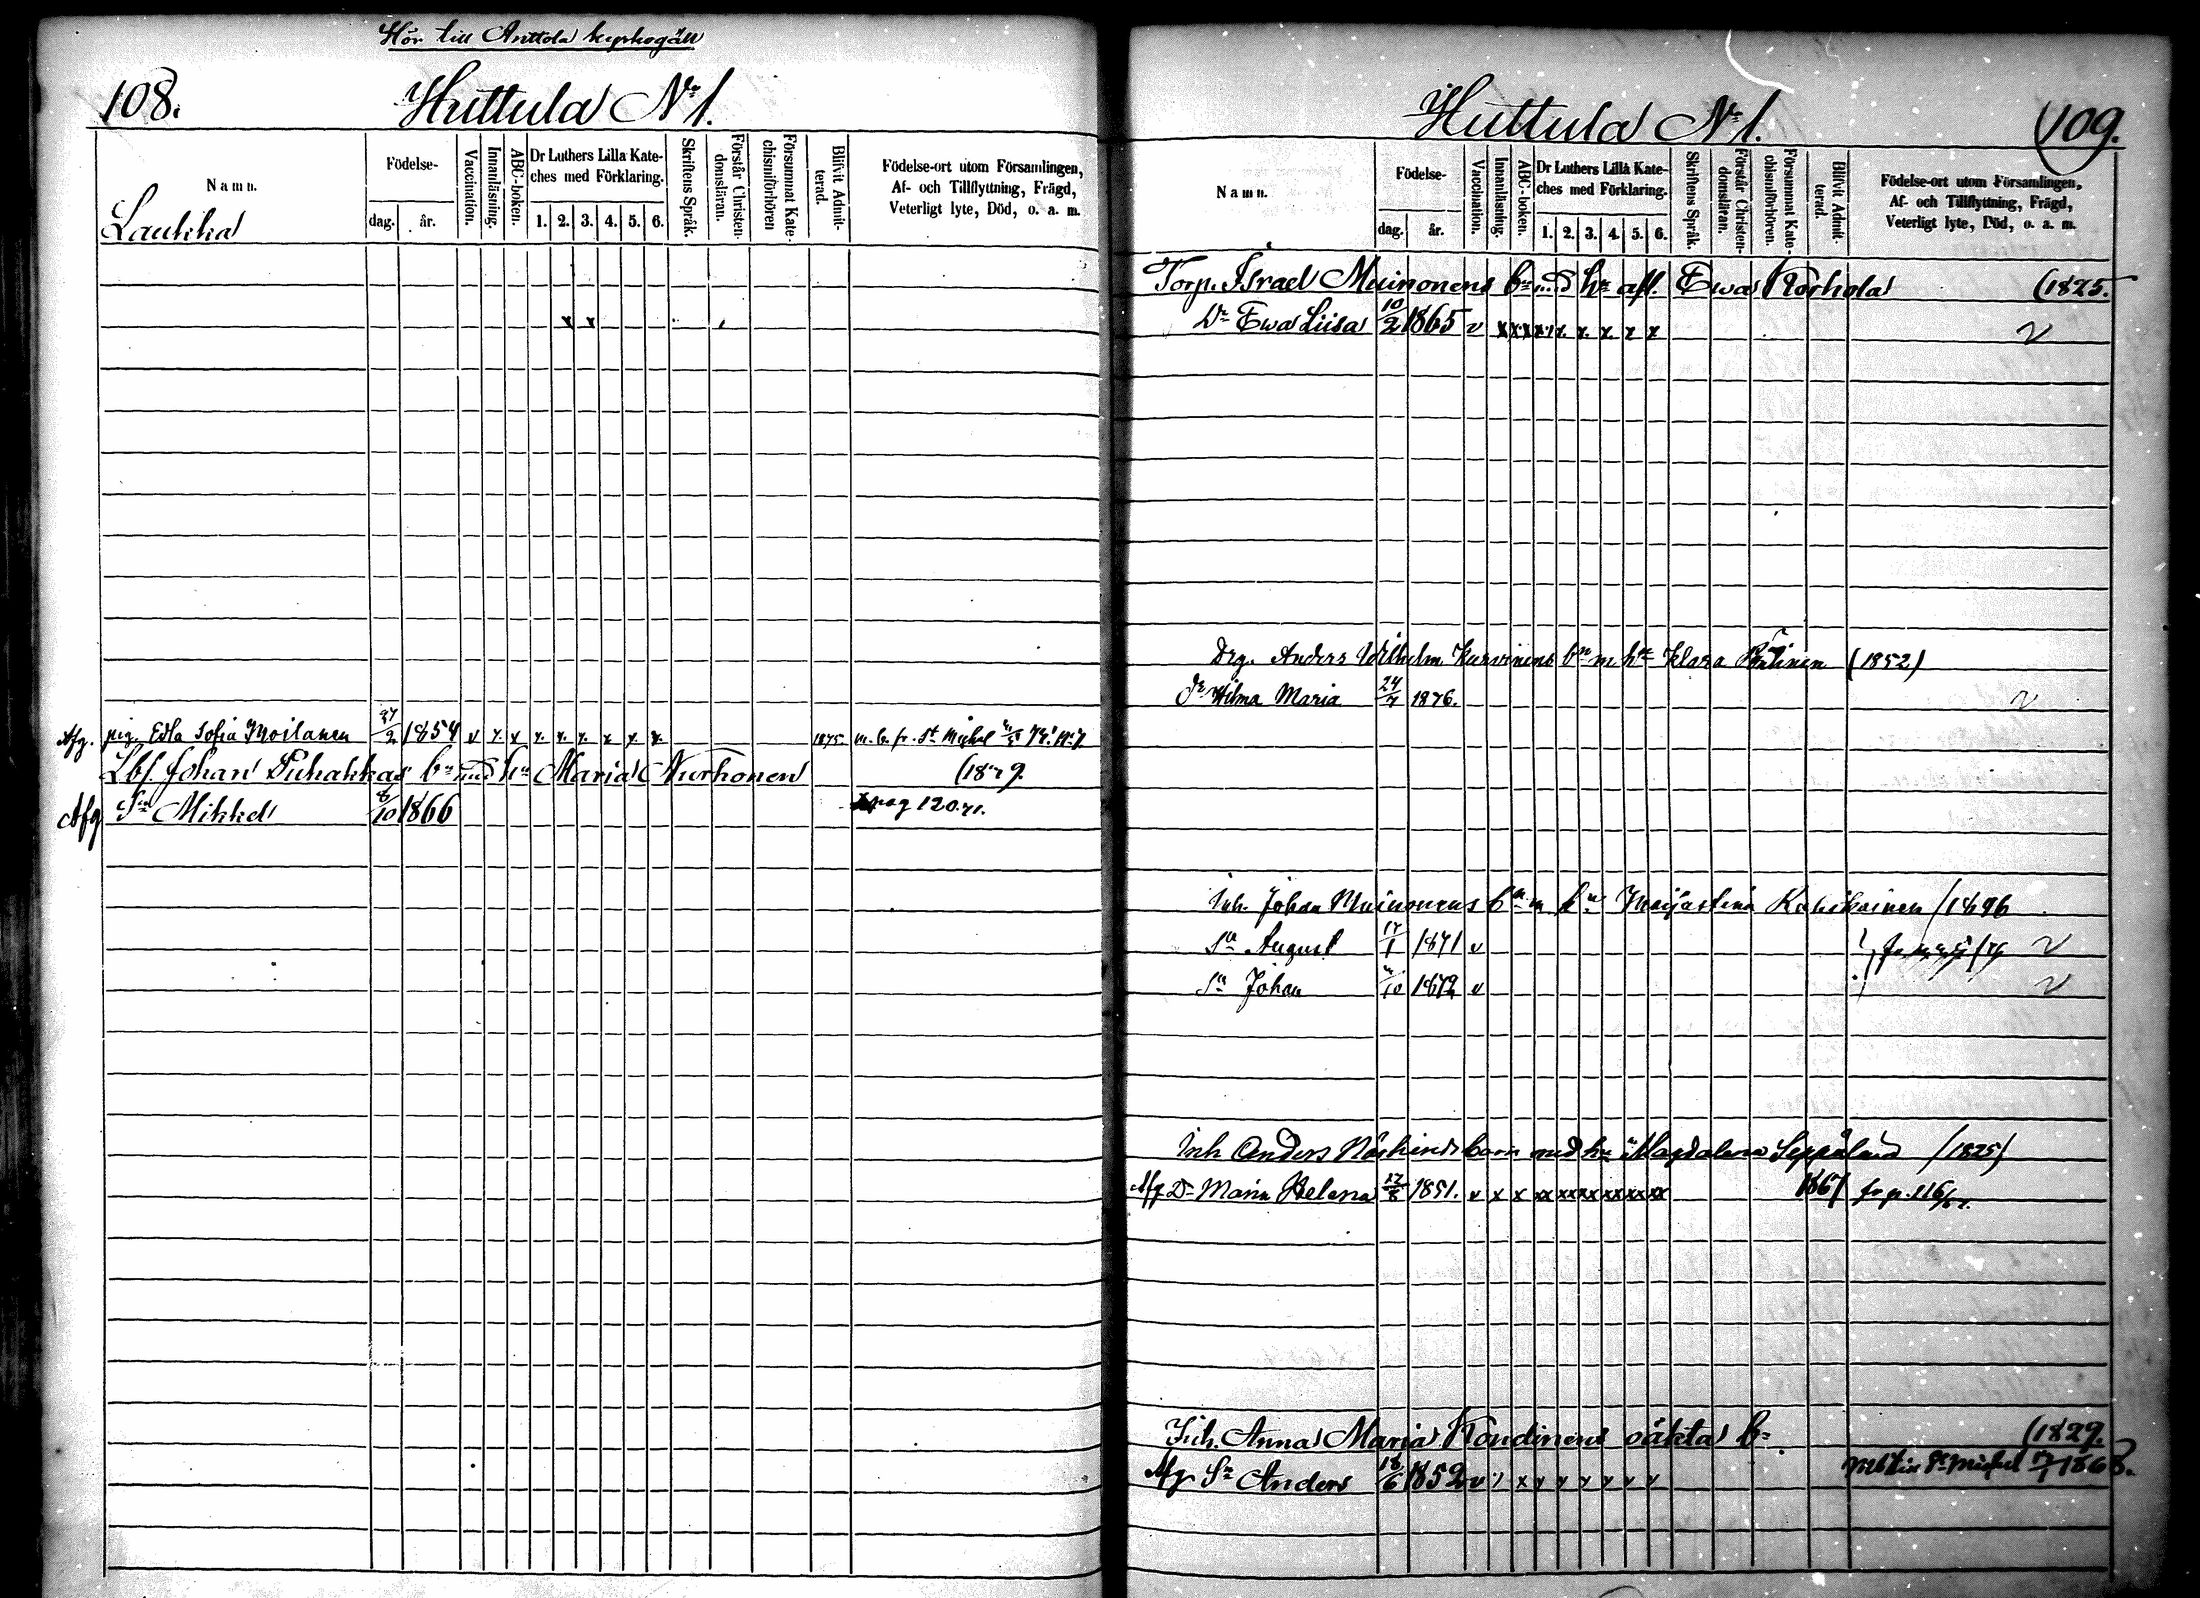 Hör till Anttola
108.
Huttula No 1.
Namn.
Födelse-
dag.
år.
Vaccination.
Innanläsning.
ABC-boken.
Dr Luthers Lilla Kate-
ches med Förklaring.
1. 2. 3. 4. 5. 6.
Skriftens Språk.
Förstår Christen-
domsläran.
Försummat Kate-
chismiförhören
Blifvit Admit-
terad.
Födelse-ort utom Församlingen,
Af- och Tillflyttning, Frägd,
Veterligt lyte, Död, o. a. m.
Laukka
x x
Afg. pig. Edla Sofia Moilanen 27/2 1854 v x x x x x x x x 1875 m. b. fr. St Michel
Lbf. Johan Puhakkas bn med hn Maria Nurhonen
Afg Sn Mikkel 8/10 1866 pag 120
Huttula No 1.
109.
Namn.
Födelse-
dag.
år.
Vaccination.
Innanläsning.
ABC-boken.
Dr Luthers Lilla Kate-
ches med Förklaring.
1. 2. 3. 4. 5. 6.
Skriftens Språk.
Förstår Christen-
domsläran.
Försummat Kate-
chismiförhören.
Blifvit Admit-
terad.
Födelse-ort utom Församlingen,
Af- och Tillflyttning, Frägd,
Veterligt lyte, Död, o. a. m.
Torp. Israel Muinonens bn med hn afl. Ewa Korhola (1825.
Dr Ewa Liisa 10/2 1865 v
Drg. Anders Wilhelm bn m hn Klara (1852)
Dr Wilma Maria 24/7 1876.
Inh. Johan Muinonens bn m hn Maijastina
Sn August 17/1 1871 v
Sn Johan 1872 v
Inh Anders barn med hn Magdalena (1825)
Afg Dr Maria Helena 12/8 1851. v x x xx xx xx xx xx xx 1867 fr p. 116
Inh. Anna Maria oäkta b. (1829.
Afg Sn Anders 18/6 1852 St Michel 1868.